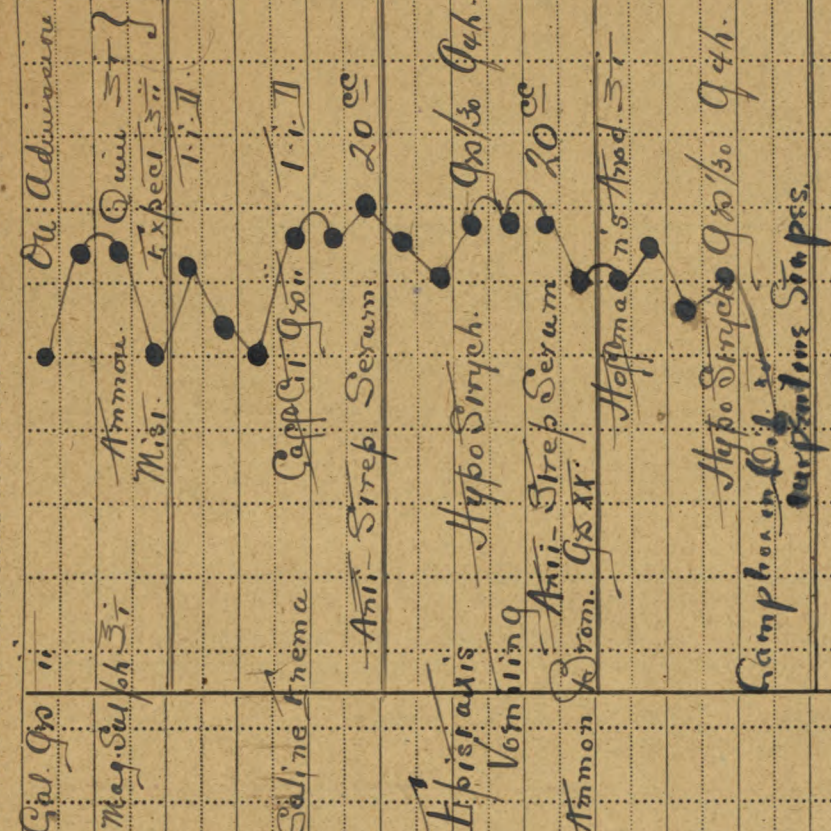 Cal. grs ii
On Admission
Mag. Sulph ʒi
Ammon. Quin ʒi }
Mist. Expect ʒii
T.i.D.
Saline Enema
Caff Cit grs ii T.i.D
Anti-Strep. Serum. 20 cc
Epistaxis
Hypo Strych. grs 1/30 q4h.
Vomiting
Anti-Strep Serum 20 cc
Ammon Brom. grs XX.
Hoffman's Anod. ʒi
Hypo Strych grs 1/30 q4h.
Camphor in Oil
Turpentine Stupes.